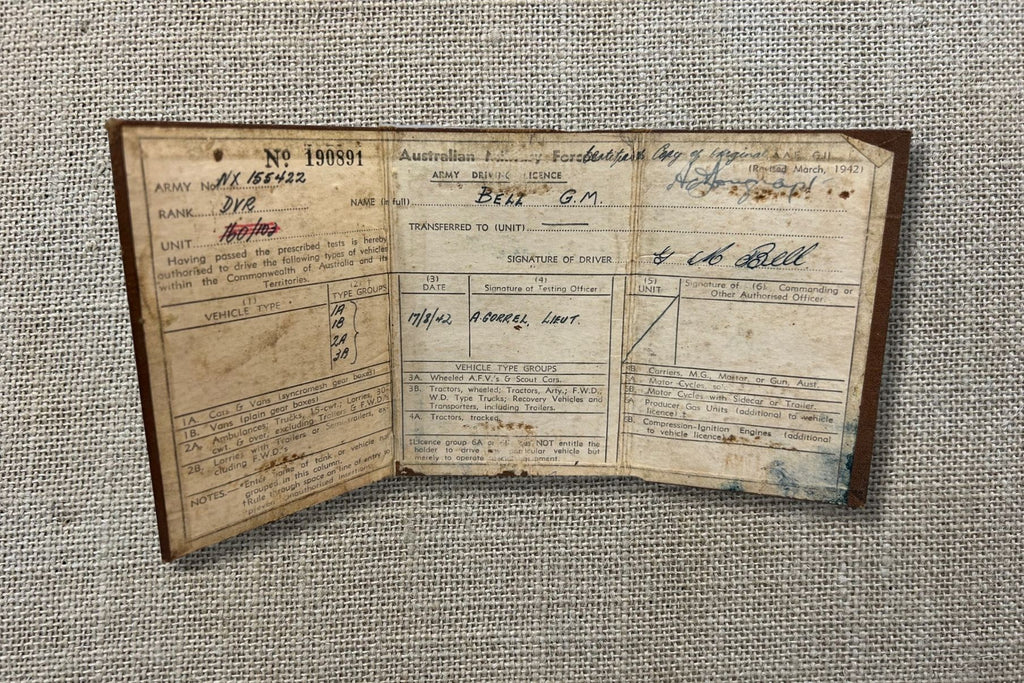 Nº 190891
ARMY No. NX 155422
RANK DVR
UNIT 160/103
Having passed the prescribed tests is hereby
authorised to drive the following types of vehicles
within the Commonwealth of Australia and its
Territories.
(1)
VEHICLE TYPE
(2)
TYPE GROUPS
1A
1B
2A
3B
1A. Cars & Vans (syncromesh gear boxes)
1B. Vans (plain gear boxes)
2A. Ambulances, Trucks, 15-cwt.; Lorries, 30-
cwt. & over, excluding Trailers & F.W.D's
2B. Lorries with Trailers or Semi-trailers, ex-
cluding F.W.D's.
NOTES. *Enter name of tank or vehicle not
grouped in this column.
†Rule through space on line of entry to
prevent unauthorised insertions.
Australian Military Forces
ARMY DRIVING LICENCE
NAME (in full) BELL G.M.
TRANSFERRED TO (UNIT)
SIGNATURE OF DRIVER G M Bell
(3)
DATE
(4)
Signature of Testing Officer
17/8/42 A. GORREL, LIEUT.
VEHICLE TYPE GROUPS
3A. Wheeled A.F.V.'s & Scout Cars.
3B. Tractors, wheeled; Tractors, Arty.; F.W.D.,
W.D. Type Trucks; Recovery Vehicles and
Transporters, including Trailers.
4A. Tractors, tracked.
Licence group 6A or 6B does NOT entitle the
holder to drive any particular vehicle but
merely to operate special equipment.
Certified Copy of original
(Revised March, 1942)
(5)
UNIT
Signature of (6) Commanding or
Other Authorised Officer
4B. Carriers, M.G., Mortar, or Gun, Aust.
5A. Motor Cycles, solo
5B. Motor Cycles with Sidecar or Trailer
6A. Producer Gas Units (additional to vehicle
licence) ‡
6B. Compression-Ignition Engines (additional
to vehicle licence)